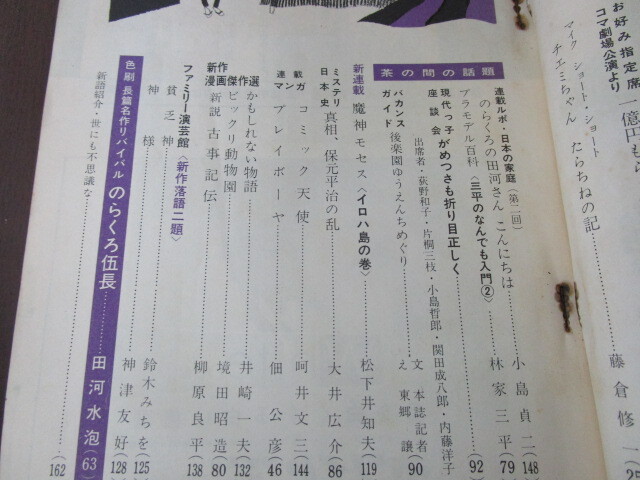 お好み指定席
コマ劇場公演より
一億円もら
マイク ショート・ショート
チエミちゃん たらちねの記
藤倉修一
25
茶の間の話題
連載ルポ・日本の家庭（第二回）
のらくろの田河さん こんにちは 小島貞二(148)
プラモデル百科〈三平のなんでも入門②〉 林家三平(79)
現代っ子がめつさも折り目正しく (92)
座談会
出席者・荻野和子・片桐三枝・小島哲郎・関田成八郎・内藤洋子
バカンスガイド 後楽園ゆうえんちめぐり 文 本誌記者 え 東郷譲 (90)
新連載 魔神モセス〈イロハ島の巻〉 松下井知夫(119)
ミステリ日本史 真相、保元平治の乱 大井広介(86)
連載マンガ コミック天使 呵井文三(144)
プレイボーヤ 佃公彦(46)
新作漫画傑作選
かもしれない物語 井崎一夫(132)
ビックリ動物園 境田昭造(80)
新説古事記伝 柳原良平(138)
ファミリー演芸館〈新作落語二題〉
貧乏神 鈴木みちを(125)
神様 神津友好(128)
色刷 長篇名作リバイバル のらくろ伍長 田河水泡(63)
新語紹介・世にも不思議な (162)